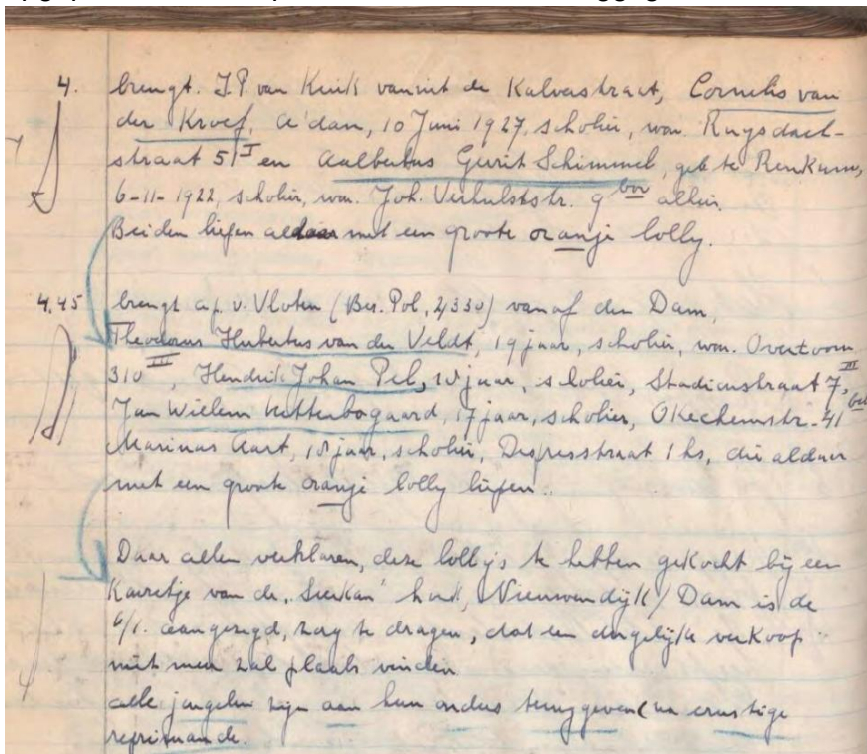 4. brengt. J.P van Kuik vanuit de Kalverstraat, Cornelis van
der Kroef, A'dam, 10 Juni 1927, scholier, won. Ruysdael-
straat 51 I en Aalbertus Gerrit Schimmel, geb te Renkum,
6-11-1922, scholier, won. Joh. Verhulststr. 9 bov allen.
Beiden liepen aldaar met een groote oranje lolly.
4.45 brengt a.p. v. Vloten (Ber. Pol, 2/330) vanaf den Dam,
Theodorus Hubertus van der Veldt, 19 jaar, scholier, won. Overtoom
310 III, Hendrik Johan Pel, 18 jaar, scholier, Stadionstraat 7 III,
Jan Willem Uittenbogaard, 17 jaar, scholier, Okeghemstr. 41
Marinus Aart, 18 jaar, scholier, Despresstraat 1 hs, die aldaar
met een groote oranje lolly liepen.
Daar allen verklaren, deze lolly's te hebben gekocht bij een
Karretje van de hoek, Nieuwendijk/Dam is de
aangezegd, zorg te dragen, dat een dergelijke verkoop
niet meer zal plaats vinden
alle jongelui zijn aan hun ouders teruggeven (na ernstige
reprimande.